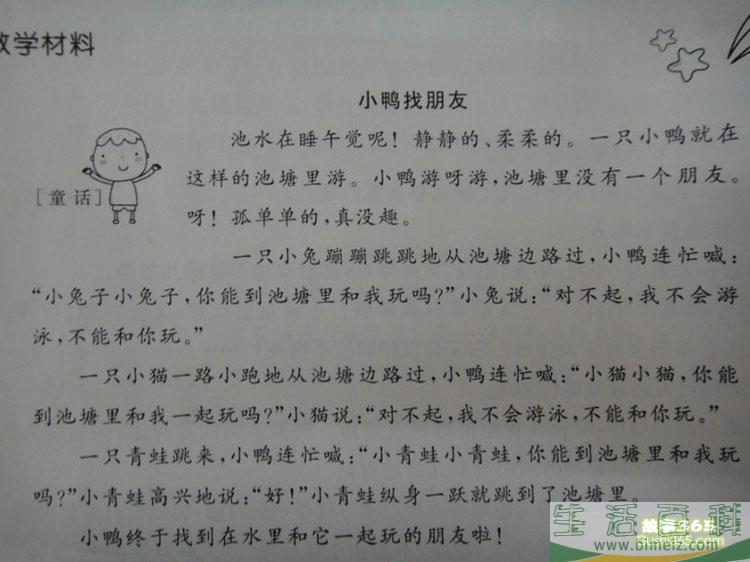 教学材料
小鸭找朋友
池水在睡午觉呢！静静的、柔柔的。一只小鸭就在
这样的池塘里游。小鸭游呀游，池塘里没有一个朋友。
[童话]
呀！孤单单的，真没趣。
一只小兔蹦蹦跳跳地从池塘边路过，小鸭连忙喊：
“小兔子小兔子，你能到池塘里和我玩吗？”小兔说：“对不起，我不会游
泳，不能和你玩。”
一只小猫一路小跑地从池塘边路过，小鸭连忙喊：“小猫小猫，你能
到池塘里和我一起玩吗？”小猫说：“对不起，我不会游泳，不能和你玩。”
一只青蛙跳来，小鸭连忙喊：“小青蛙小青蛙，你能到池塘里和我玩
吗？”小青蛙高兴地说：“好！”小青蛙纵身一跃就跳到了池塘里。
小鸭终于找到在水里和它一起玩的朋友啦！
故事365
Gushi365.com
生活百科
www.bimeiz.com